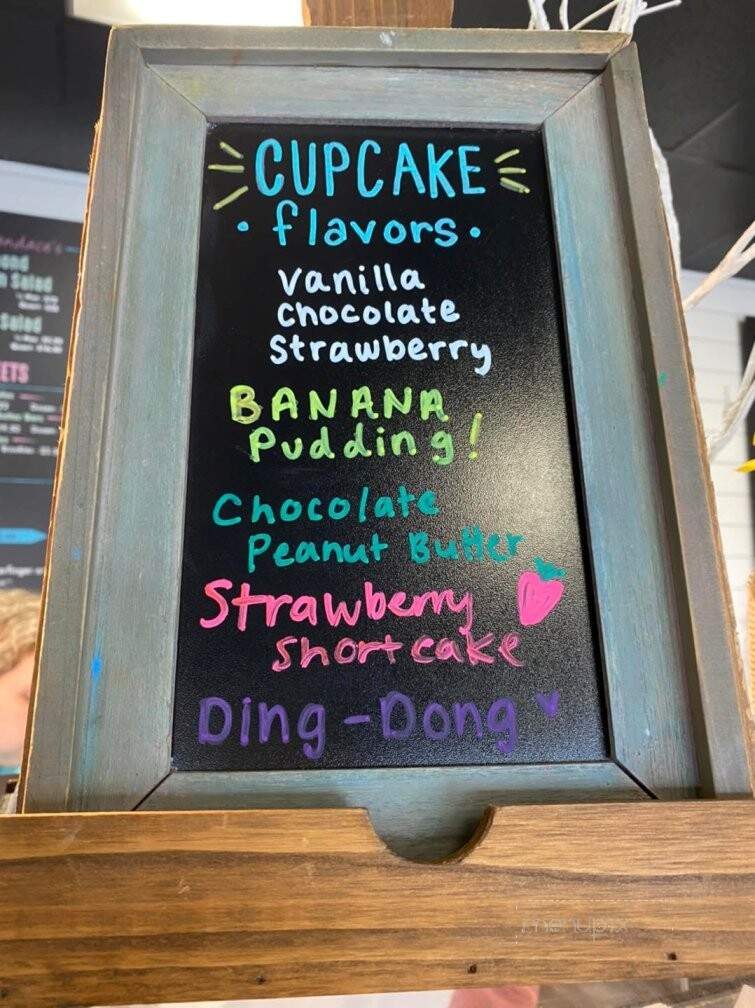 CUPCAKE
• flavors •
Vanilla
Chocolate
Strawberry
BANANA
Pudding!
Chocolate
Peanut Butter
Strawberry
Shortcake
Ding-Dong
Salad
Salad
ETS
menupix